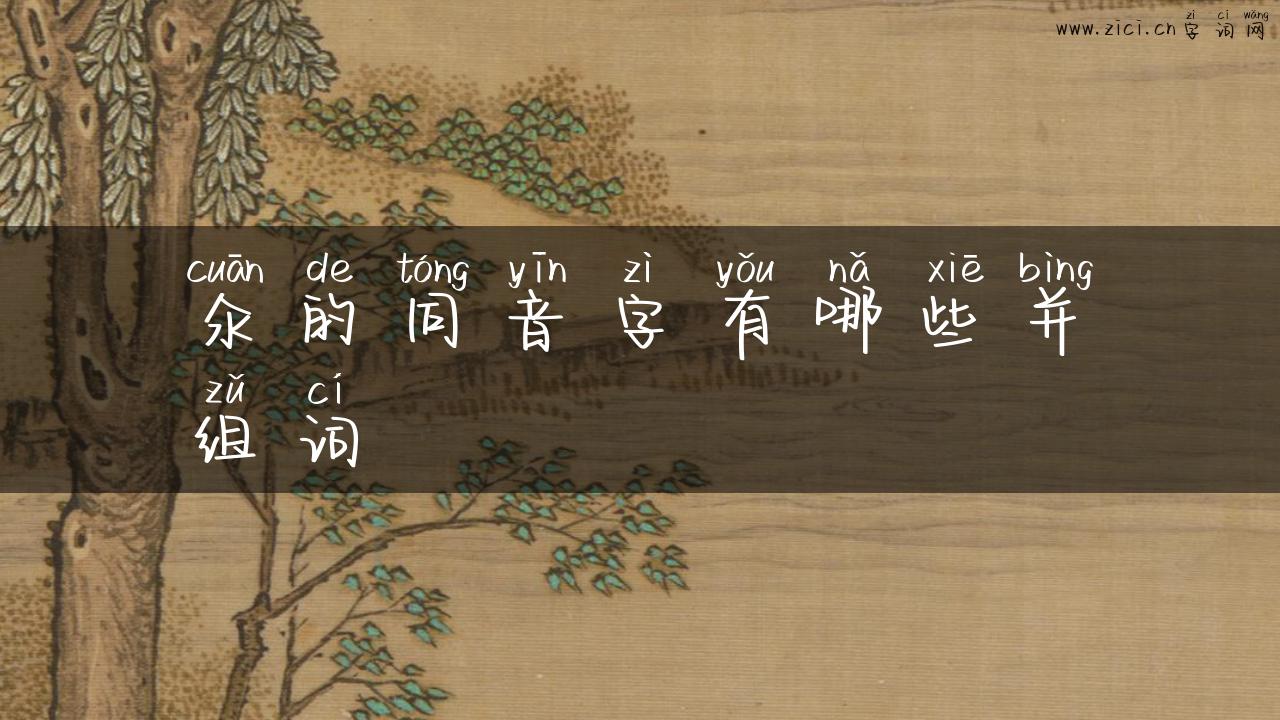 www.zici.cn 字词网
zì cí wǎng
cuān de tóng yīn zì yǒu nǎ xiē bìng
氽的同音字有哪些并
zǔ cí
组词